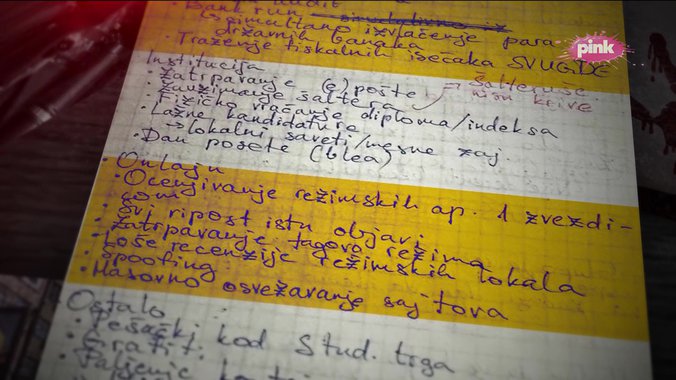 Bank run
(simultano izvlačenje para iz
državnih banaka
Traženje fiskalnih isečaka SVUGDE
pink
Institucija
Zatrpavanje (e)pošte
Zauzimanje šaltera
šalteruše
nisu krive
Fizičko vraćanje diploma/indeksa
Lažne kandidature
→ lokalni saveti/mesne zaj.
Dan posete (blea)
Onlajn
Ocenjivanje režimskih ap. 1 zvezdi-
com
Svi ripost istu objavu
Zatrpavanje tagova režima
Loše recenzije režimskih lokala
Spoofing
Masovno osvežavanje sajtova
Ostalo
Pešački kod Stud. trga
Grafit.
Paljenje